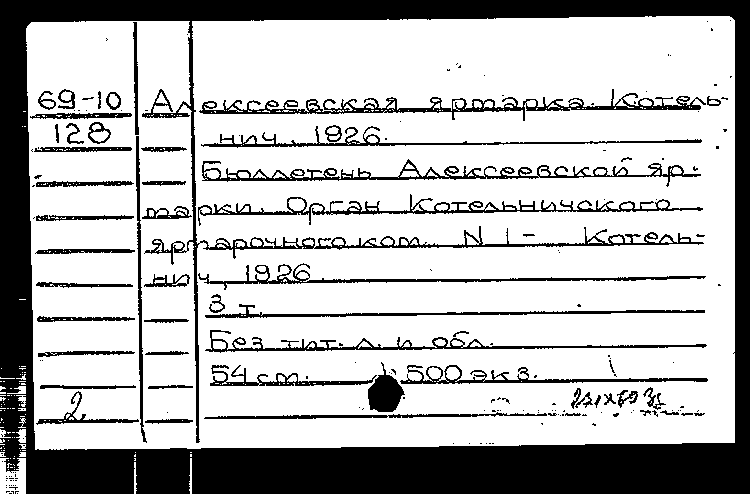 69-10 Алексеевская ярмарка. Котель-
128 нич. 1926.
Бюллетень Алексеевской яр-
марки. Орган Котельничского
ярмарочного ком. N 1- Котель-
нич, 1926.
3 т.
Без тит. л. и обл.
54 см. 500 экз.
2